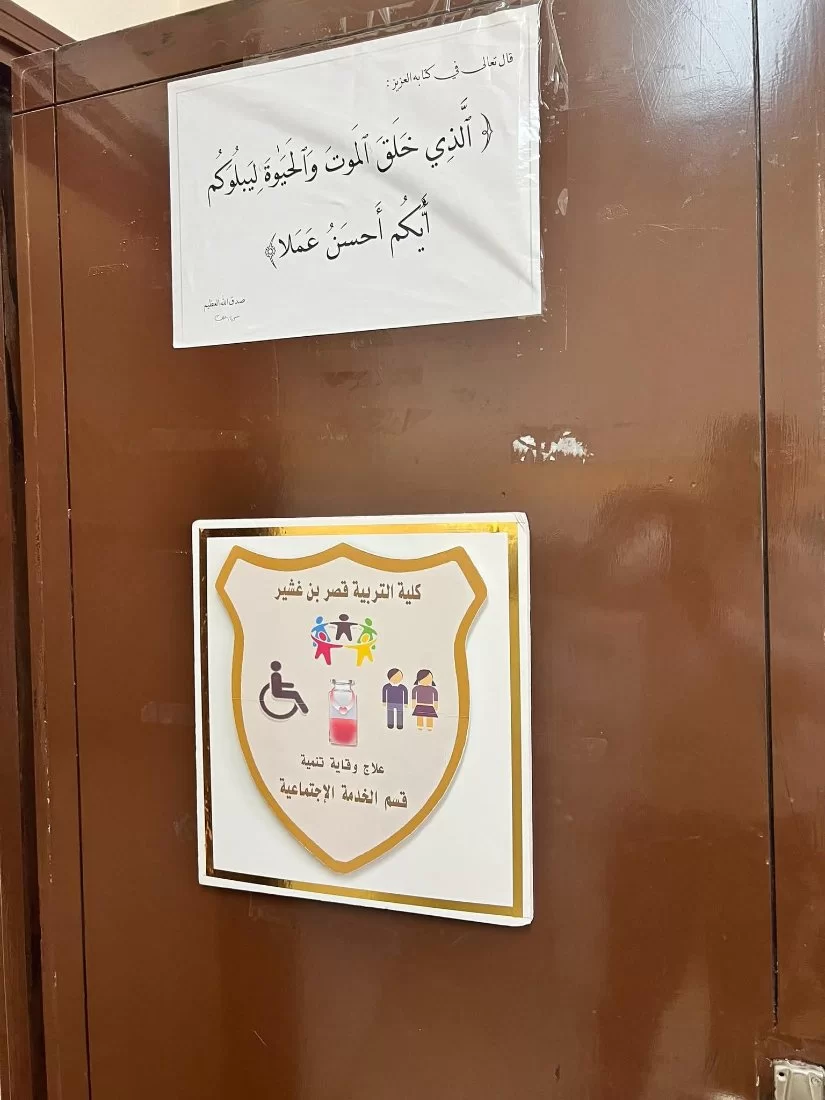 قال تعالى في كتابه العزيز :
﴿ ٱلَّذِي خَلَقَ ٱلمَوتَ وَٱلحَيَوٰةَ لِيَبلُوَكُم
أَيُّكُم أَحسَنُ عَمَلا﴾
صدق الله العظيم
كلية التربية قصر بن غشير
علاج وقاية تنمية
قسم الخدمة الإجتماعية